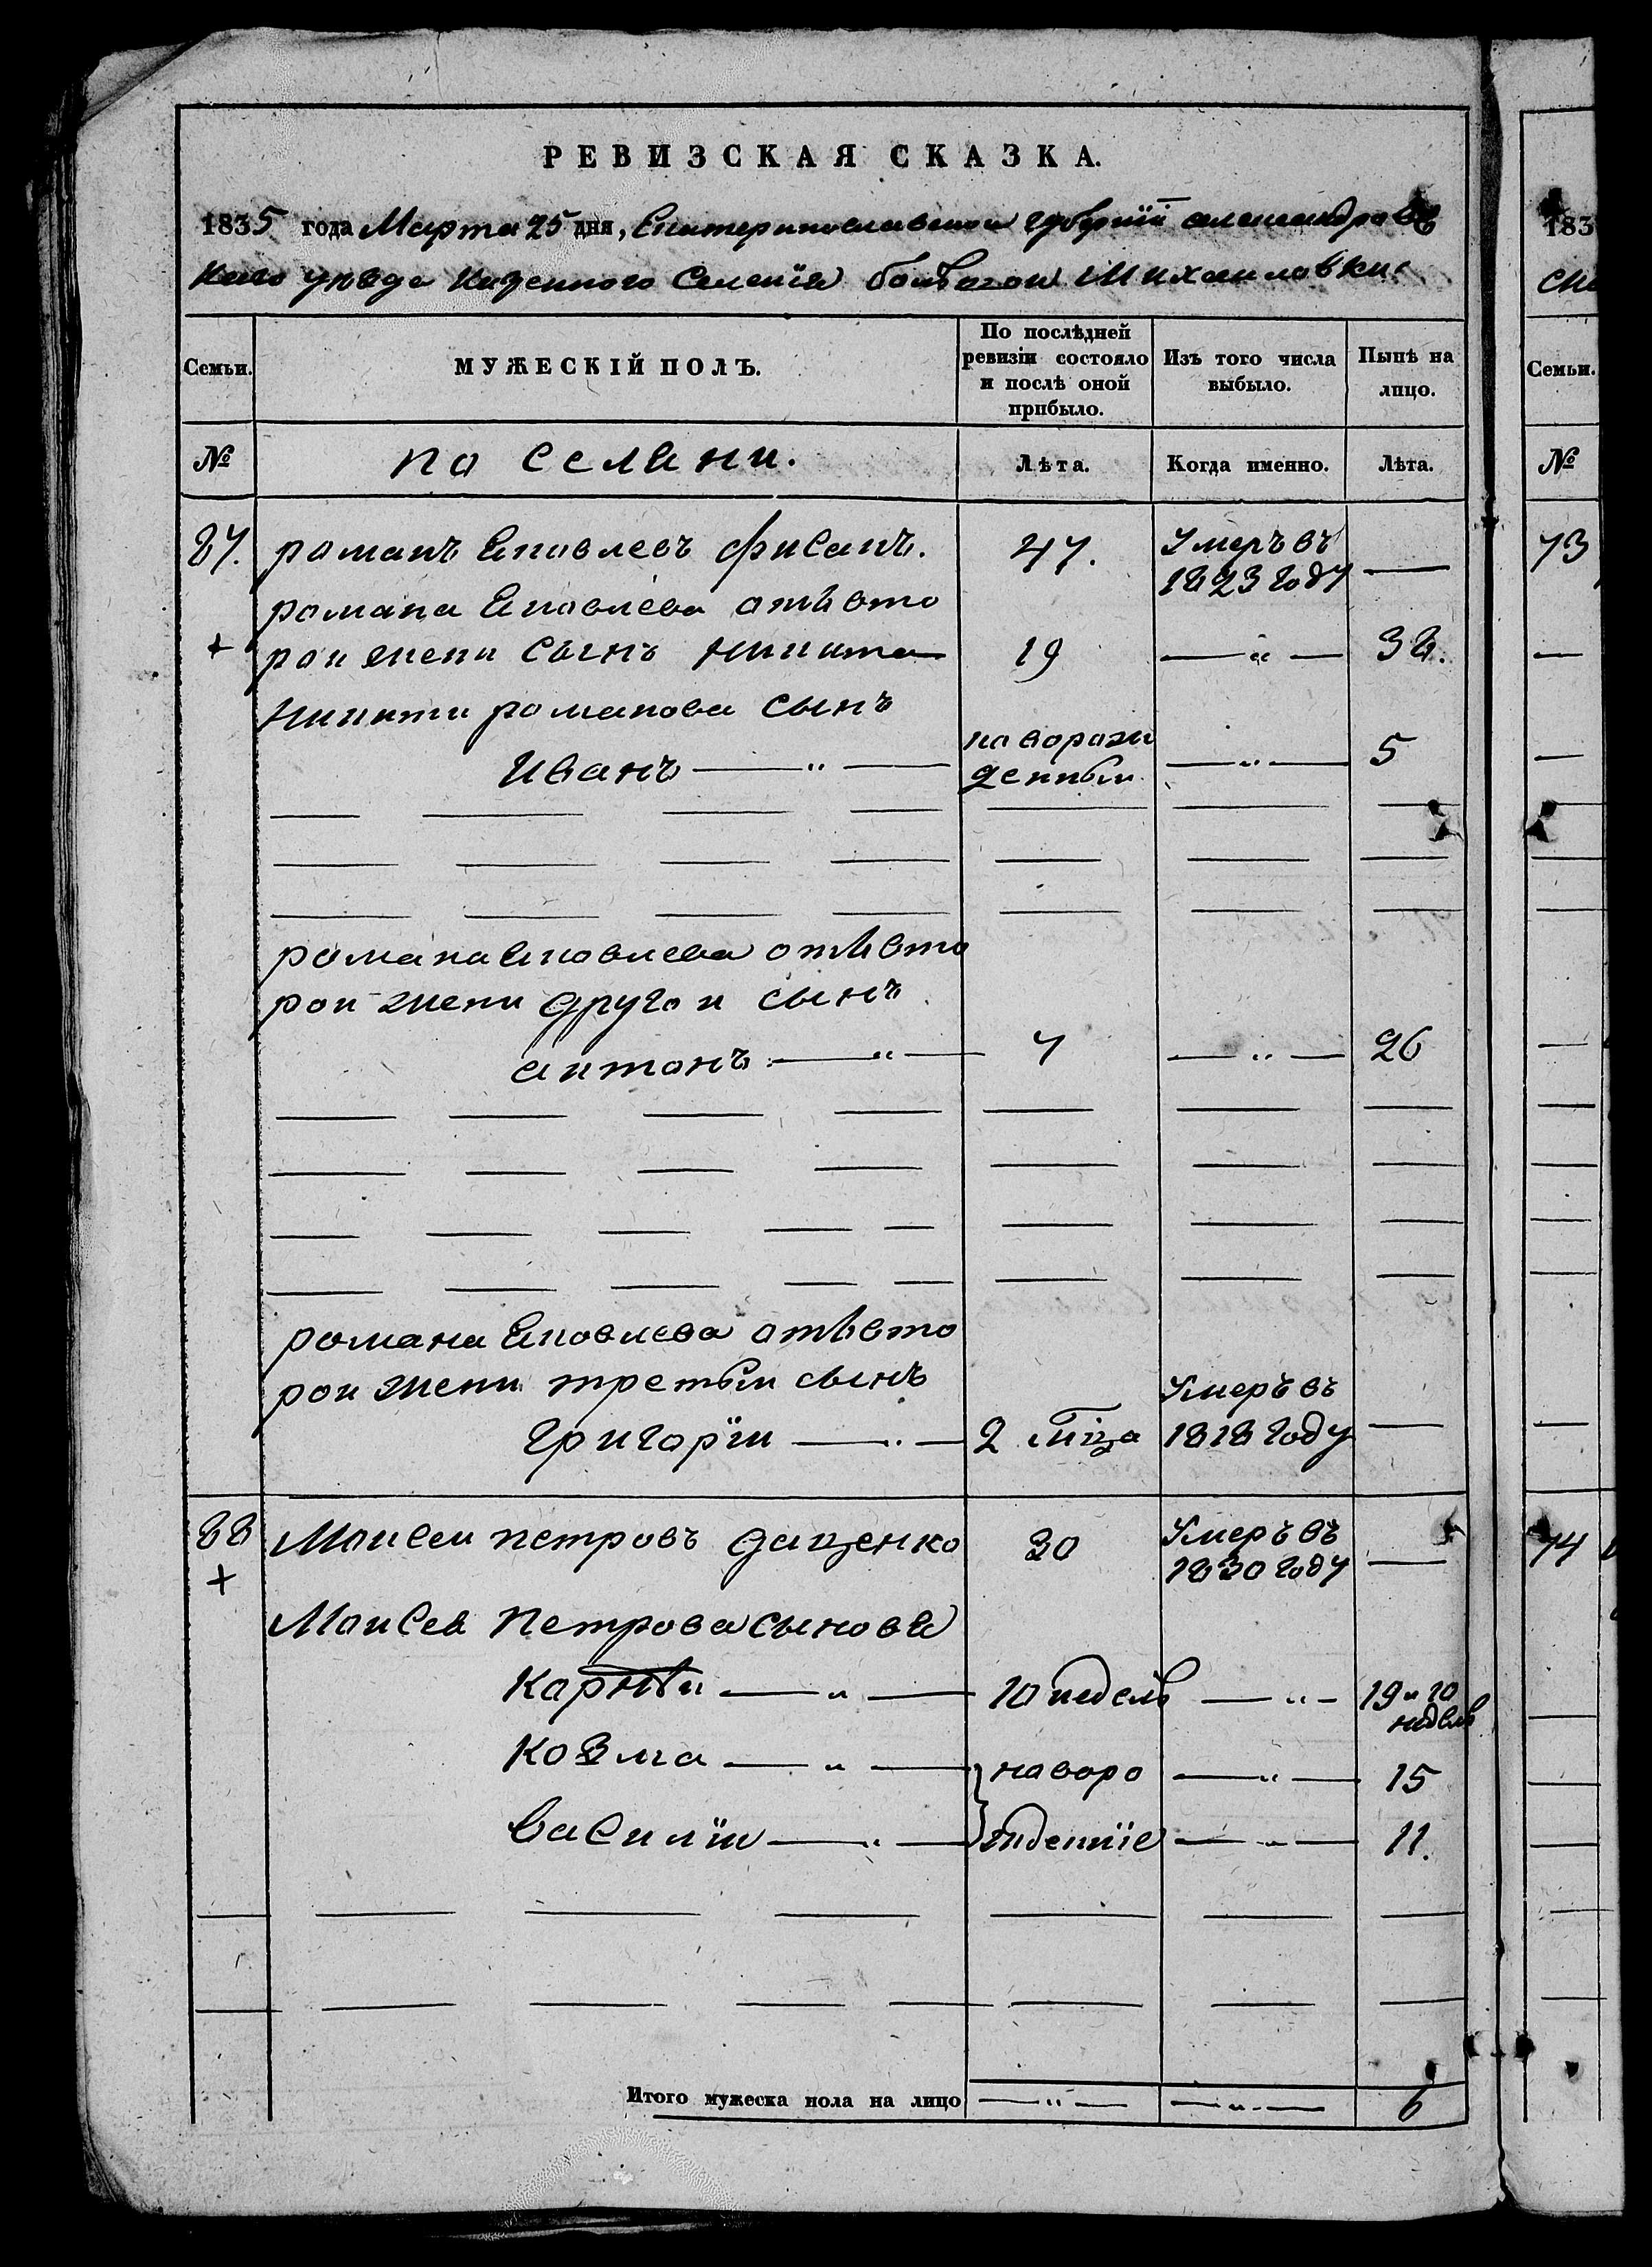 РЕВИЗСКАЯ СКАЗКА.
1835 года Марта 25 дня, Екатеринославской губернїй александровс
каго уѣзда Казенного Селенїя болшой Михаиловки
Семьи.
МУЖЕСКІЙ ПОЛЪ.
По послѣдней ревизіи состояло и послѣ оной прибыло.
Изъ того числа выбыло.
Нынѣ на лицо.
№
по Селяни.
Лѣта.
Когда именно.
Лѣта.
87. романъ Яковлевъ фисанъ. 47. Умеръ въ 1823 году —
романа Яковлева отъ вто
рои жени Сынъ Никита 19 — " — 38.
Никити романова Сынъ
Иванъ — " — новорож денным — " — 5
романа Яковлева отъ вто
рои жени другои сынъ
антонъ — " — 7 — " — 26
романа Яковлева отъ вто
рои жени третьи сынъ
Григорїи — " — 2 мца Умеръ въ 1818 году —
88 Моисеи петровъ даценко 30 Умеръ въ 1830 году —
Моисея Петрова сыновя
Карнѣи — " — 10 недель — " — 19 и 10 недель
Козма — " — новоро — " — 15
Василїи — " — жденнїе — " — 11.
Итого мужеска пола на лицо — " — — " — 6
183
Семьи.
№
73
74